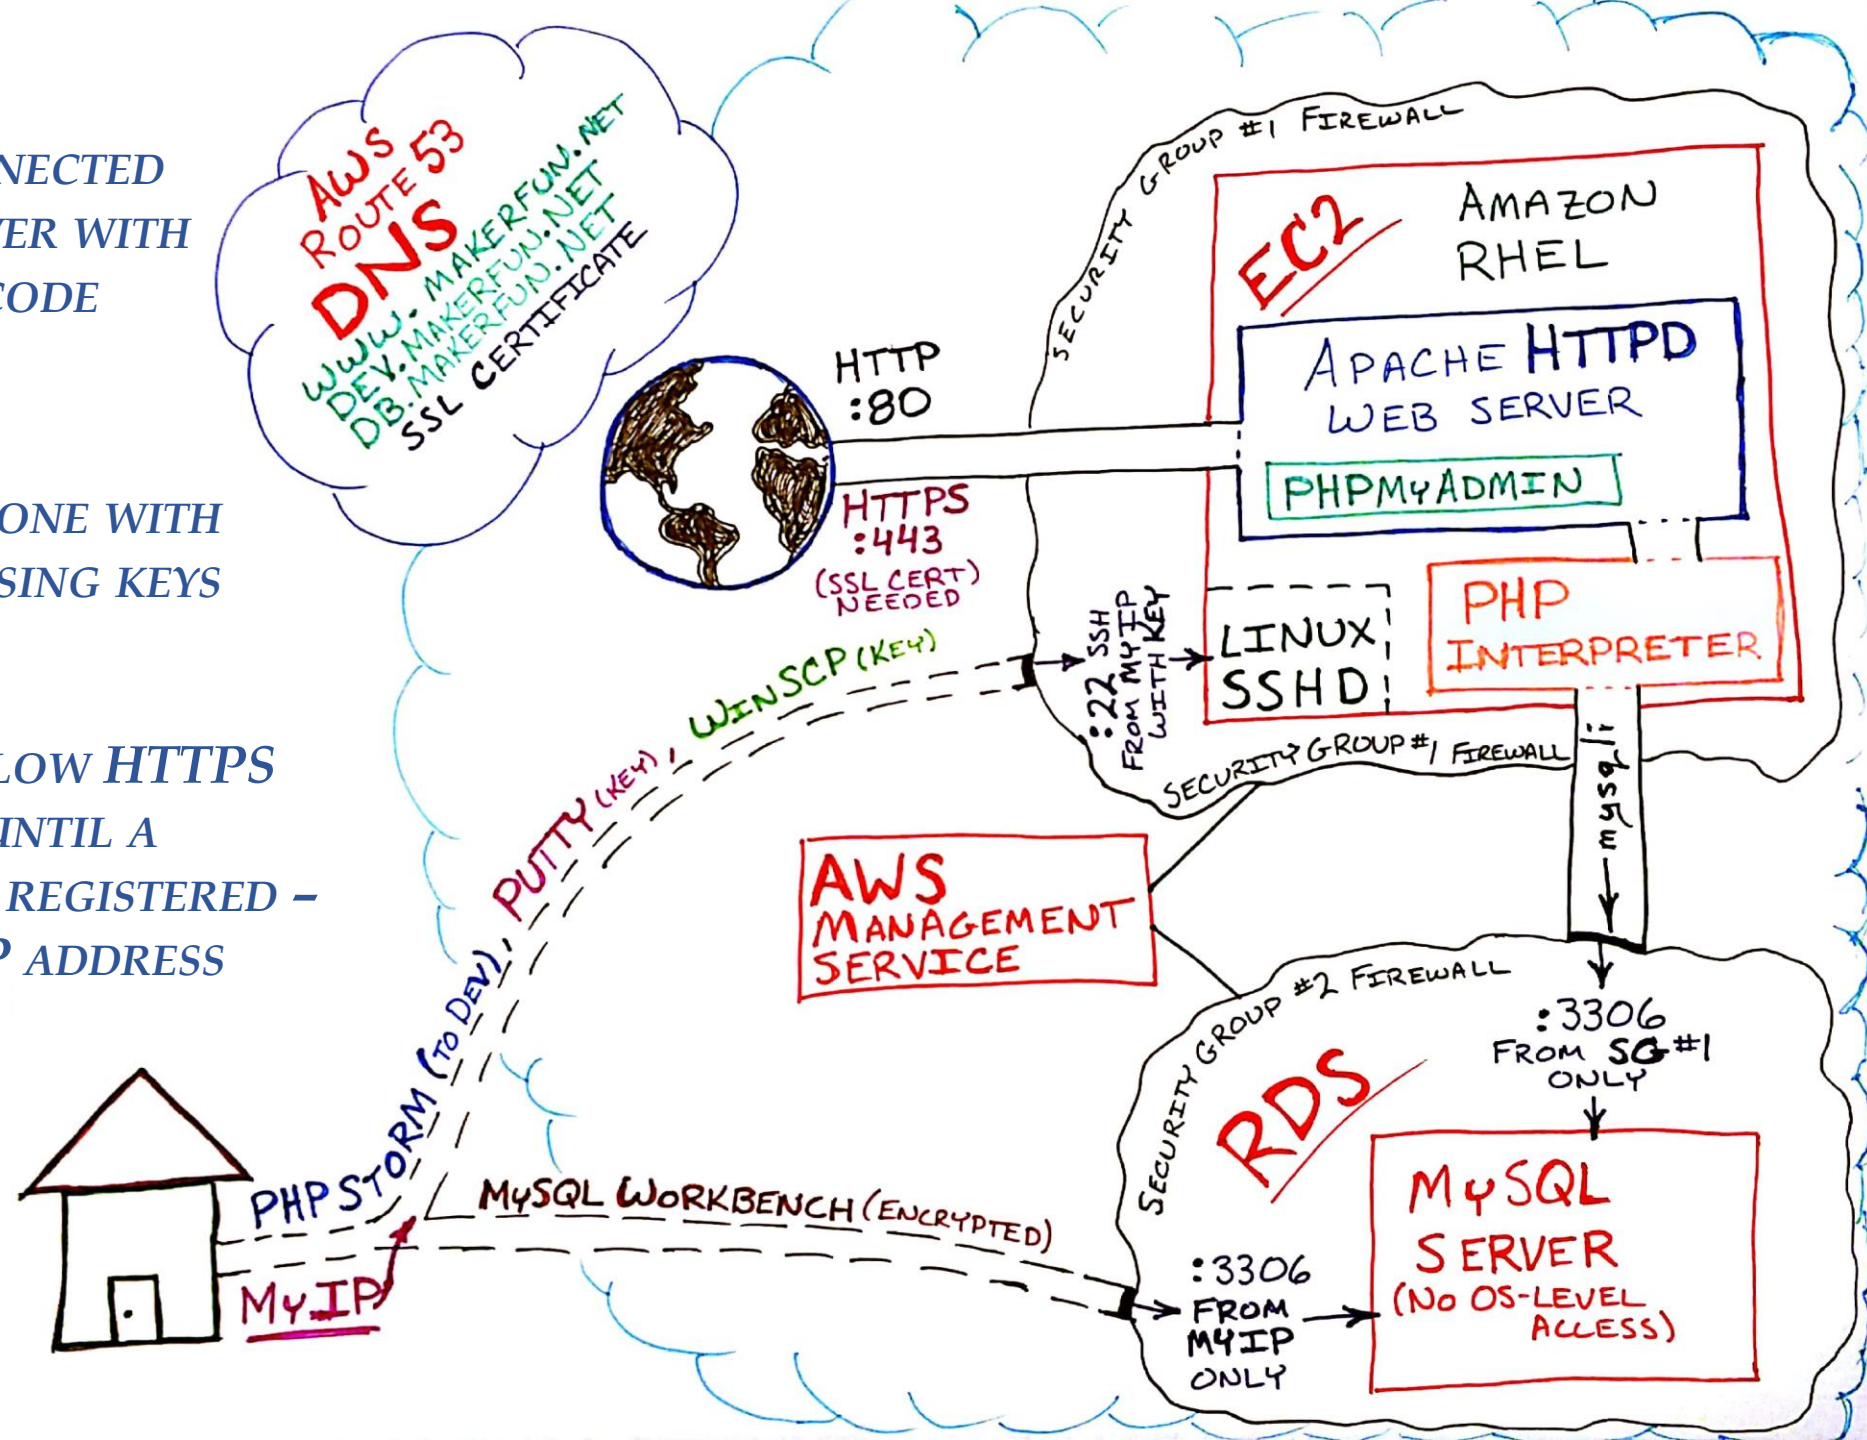 NNECTED
VER WITH
CODE
ONE WITH
SING KEYS
LOW HTTPS
UNTIL A
REGISTERED –
P ADDRESS
AWS
ROUTE 53
DNS
WWW. MAKERFUN.NET
DEV. MAKERFUN.NET
DB. MAKERFUN.NET
SSL CERTIFICATE
HTTP
:80
HTTPS
:443
(SSL CERT)
NEEDED
SECURITY GROUP #1 FIREWALL
EC2
AMAZON
RHEL
APACHE HTTPD
WEB SERVER
PHPMyADMIN
PHP
INTERPRETER
LINUX
SSHD
:22 SSH
FROM MY IP
WITH KEY
SECURITY GROUP #1 FIREWALL
mysqli
PHPSTORM (TO DEV), PUTTY (KEY), WINSCP (KEY)
AWS
MANAGEMENT
SERVICE
SECURITY GROUP #2 FIREWALL
RDS
:3306
FROM SG #1
ONLY
MySQL
SERVER
(NO OS-LEVEL
ACCESS)
MySQL WORKBENCH (ENCRYPTED)
:3306
FROM
MYIP
ONLY
MyIP